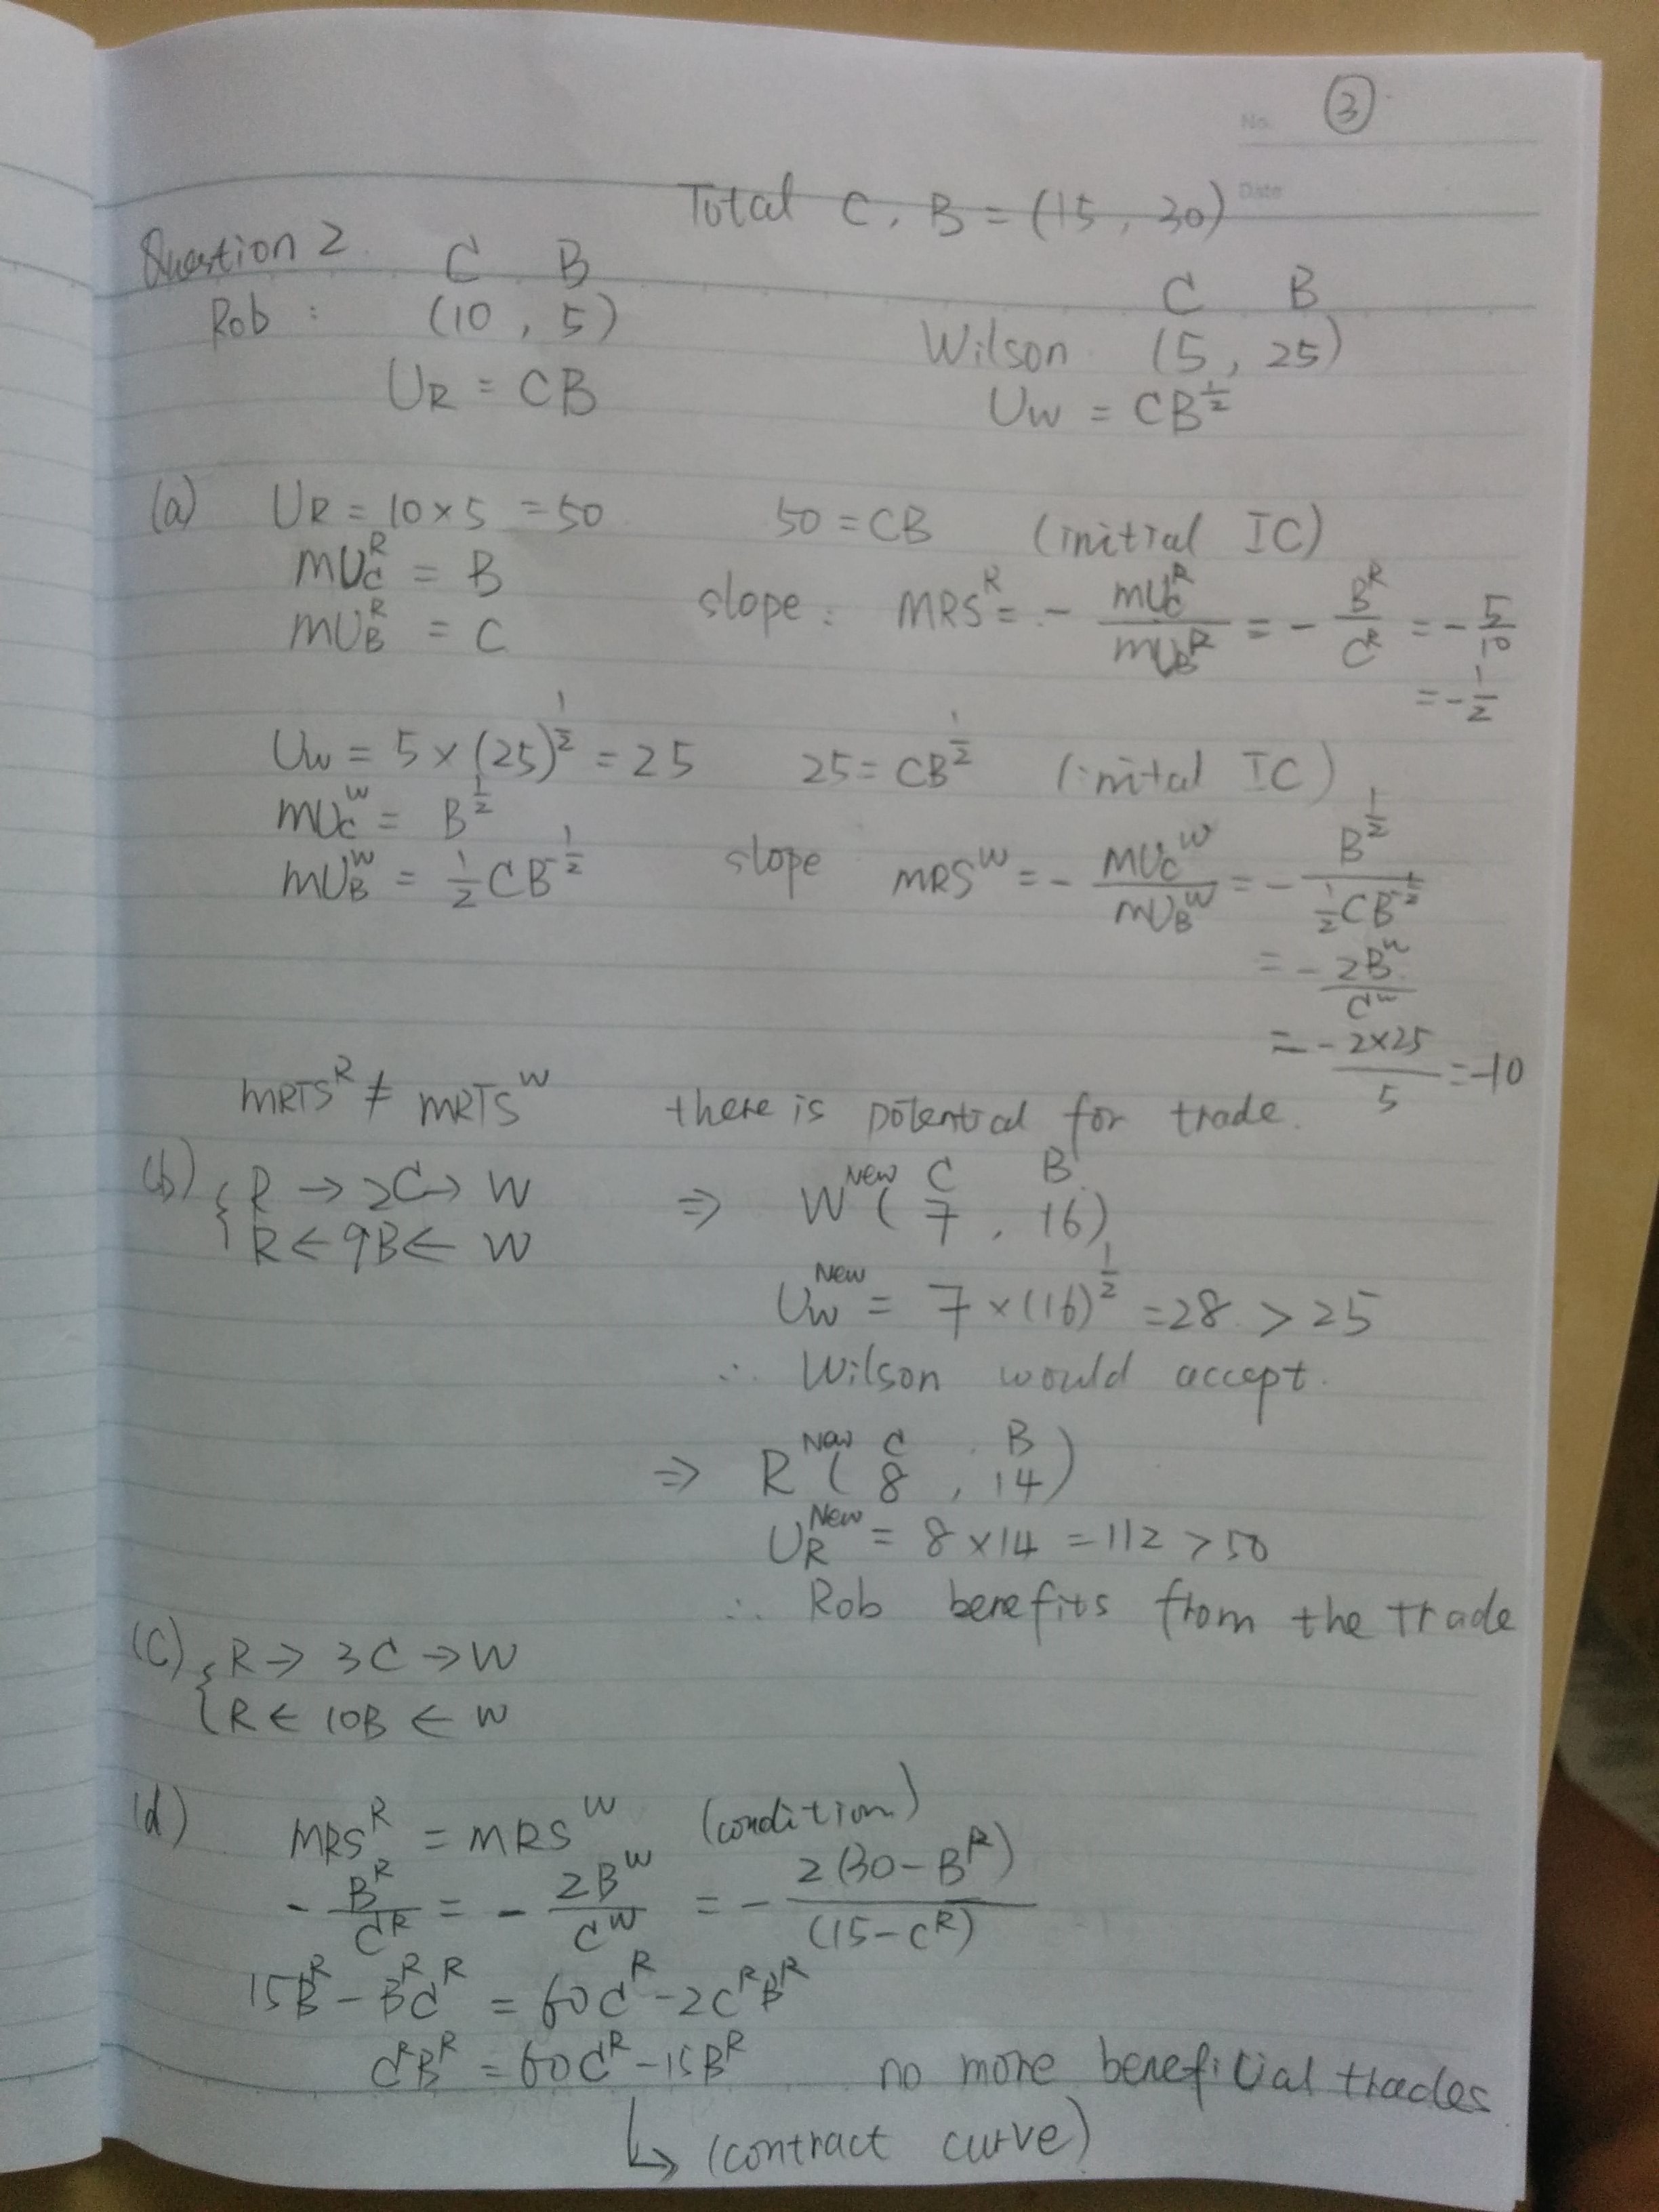 No. ③
Date
Total C, B = (15, 30)
Question 2
C B
Rob : (10, 5)
U_R = CB
C B
Wilson (5, 25)
U_W = CB^{1/2}
(a) U_R = 10 × 5 = 50 50 = CB (initial IC)
MU_C^R = B
MU_B^R = C
slope : MRS^R = - MU_C^R / MU_B^R = - B^R / C^R = - 5/10
= - 1/2
U_W = 5 × (25)^{1/2} = 25 25 = CB^{1/2} (inital IC)
MU_C^W = B^{1/2}
MU_B^W = 1/2 CB^{-1/2}
slope MRS^W = - MU_C^W / MU_B^W = - B^{1/2} / 1/2 CB^{-1/2}
= - 2B^W / C^W
= - 2×25 / 5 = -10
MRTS^R ≠ MRTS^W there is potential for trade.
(b) { R → 2C → W
R ← 9B ← W
⇒ W^{New} (C 7, B 16)
U_W^{New} = 7 × (16)^{1/2} = 28 > 25
∴ Wilson would accept.
⇒ R^{New} (C 8, B 14)
U_R^{New} = 8 × 14 = 112 > 50
∴ Rob benefits from the trade
(c) { R → 3C → W
R ← 10B ← W
(d) MRS^R = MRS^W (condition)
- B^R / C^R = - 2B^W / C^W = - 2(30 - B^R) / (15 - C^R)
15B^R - B^R C^R = 60C^R - 2C^R B^R
C^R B^R = 60C^R - 15B^R no more benefitial trades
↳ (contract curve)